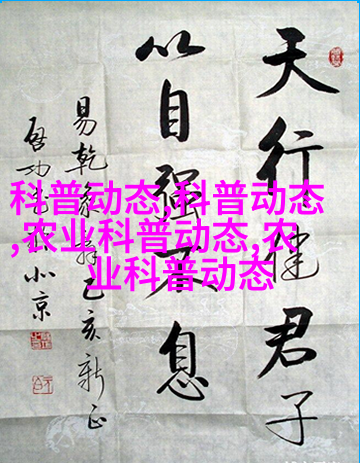 天行健君子
以自强不息
易乾象辞己亥新正
启功书于北京
科普动态,科普动态
,农业科普动态,农
业科普动态